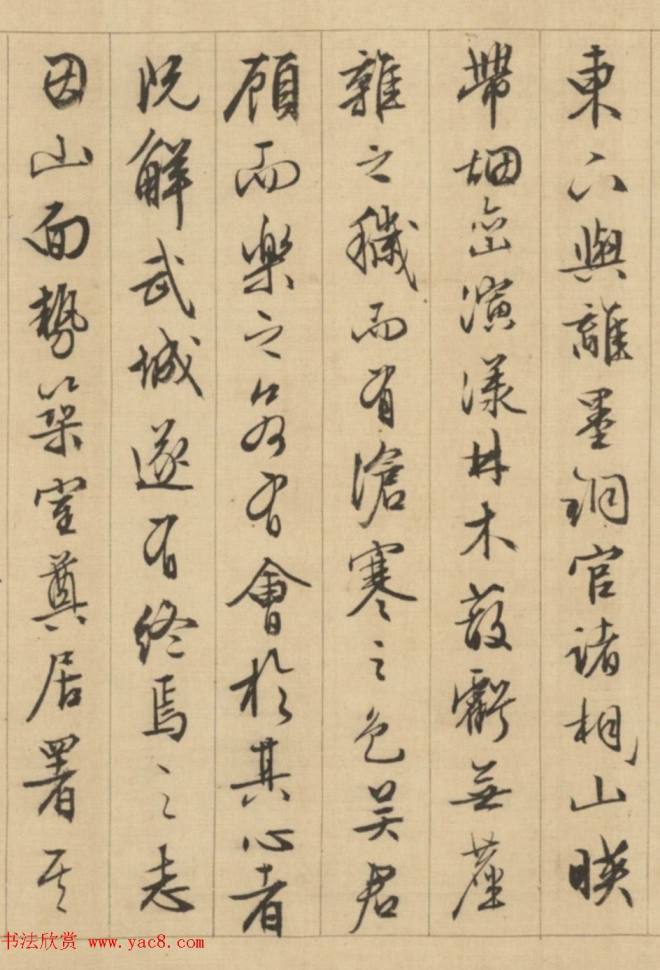 東與離墨銅官諸相山暎
帶烟巒演漾林木蔽虧無塵
雜之穢而有滄寒之色吴君
顧而樂之若有會於其心者
既解武城遂有終焉之志
因山面勢築室奠居署其
书法欣赏 www.yac8.com